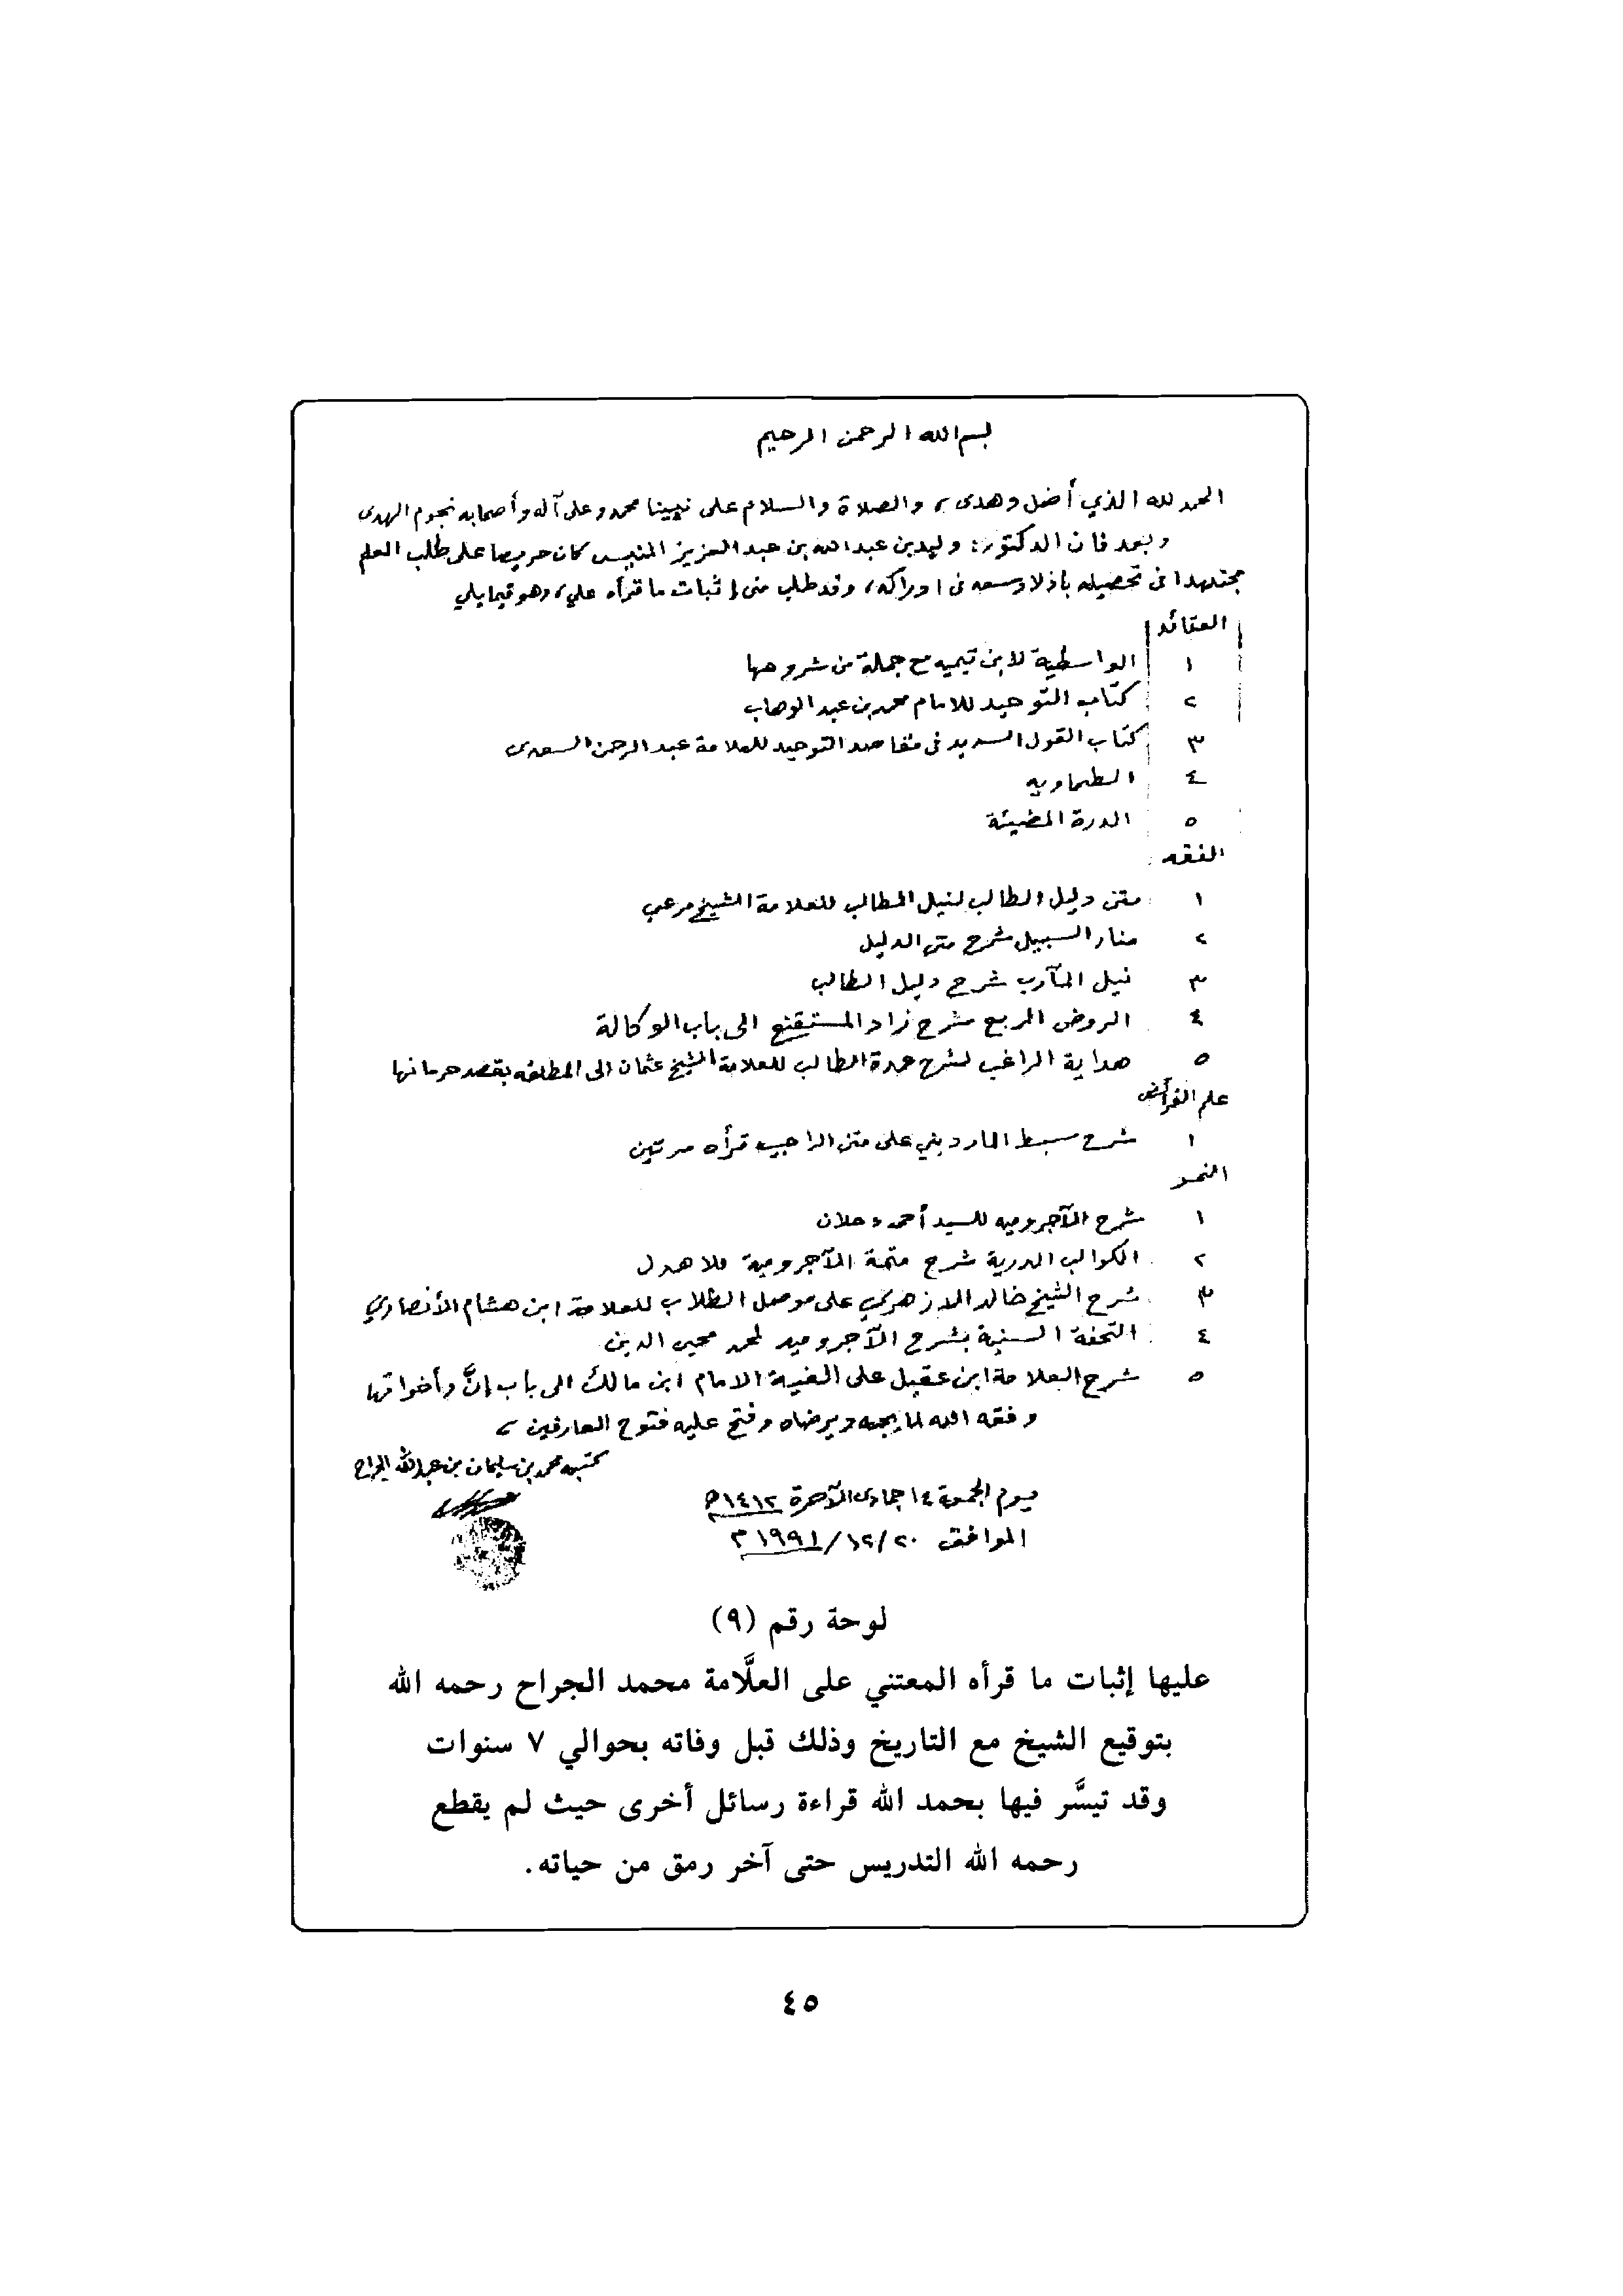 بسم الله الرحمن الرحيم
الحمد لله الذي أضل وهدى، والصلاة والسلام على نبينا محمد وعلى آله وأصحابه نجوم الهدى
وبعد فان الدكتور: وليد بن عبد الله بن عبد العزيز المنيس كان حريصا على طلب العلم
مجتهدا في تحصيله باذلا وسعه في ادراكه، وقد طلب مني إثبات ما قرأه علي، وهو فيما يلي
العقائد
١ الواسطية لابن تيميه مع جملة من شروحها
٢ كتاب التوحيد للامام محمد بن عبد الوهاب
٣ كتاب القول السديد في مقاصد التوحيد للعلامة عبد الرحمن السعدى
٤ الطحاويه
٥ الدرة المضيئة
الفقه
١ متن دليل الطالب لنيل المطالب للعلامة الشيخ مرعي
٢ منار السبيل شرح متن الدليل
٣ نيل المآرب شرح دليل الطالب
٤ الروض المربع شرح زاد المستقنع الى باب الوكالة
٥ هداية الراغب لشرح عمدة الطالب للعلامة الشيخ عثمان الى المطلقه بقصد حرمانها
علم الفرائض
١ شرح سبط المارديني على متن الراحبيه قرأه مرتين
النحو
١ شرح الآجروميه للسيد أحمد دحلان
٢ الكواكب الدرية شرح متممة الآجرومية للاهدل
٣ شرح الشيخ خالد الازهري على موصل الطلاب للعلامة ابن هشام الأنصاري
٤ التحفة السنية بشرح الآجروميه لمحمد محيي الدين
٥ شرح العلامة ابن عقيل على الفية الامام ابن مالك الى باب إنَّ وأخواتها
وفقه الله لما يحبه ويرضاه وفتح عليه فتوح العارفين،
كتبه محمد بن سليمان بن عبد الله الجراح
يوم الجمعة ١٤ جمادى الآخرة ١٤١٢ه
الموافق ٢٠/١٢/١٩٩١م
لوحة رقم (٩)
عليها إثبات ما قرأه المعتني على العلَّامة محمد الجراح رحمه الله
بتوقيع الشيخ مع التاريخ وذلك قبل وفاته بحوالي ٧ سنوات
وقد تيسَّر فيها بحمد الله قراءة رسائل أخرى حيث لم يقطع
رحمه الله التدريس حتى آخر رمق من حياته.
٤٥